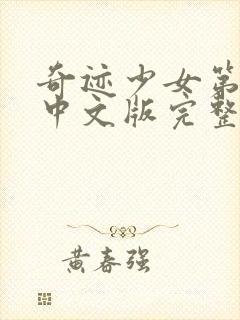 奇迹少女第
中文版完整
黄春强